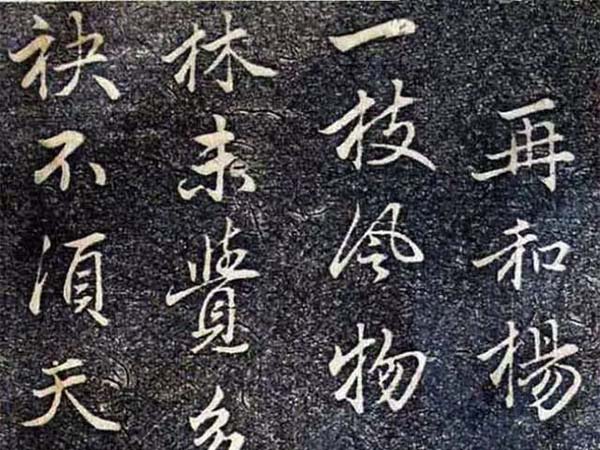 再和楊
一枝風物
林未覺多
袂不須天